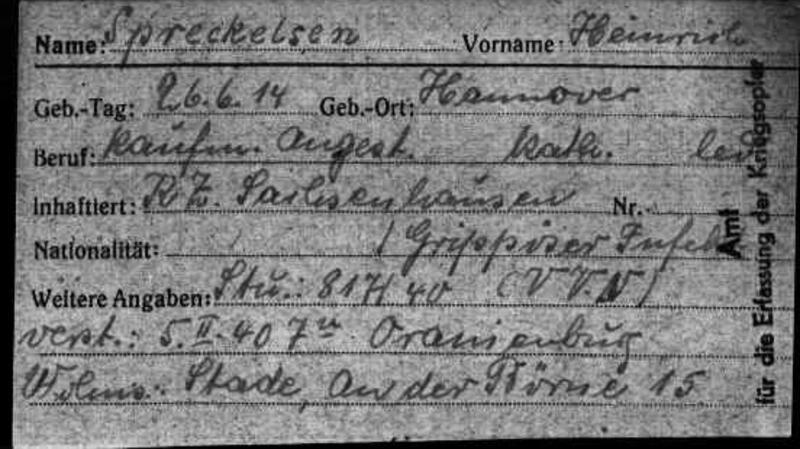 Name: Spreckelsen Vorname: Heinrich
Geb.-Tag: 26.6.14 Geb.-Ort: Hannover
Beruf: kaufm. Angest. kath. led
Inhaftiert: KZ. Sachsenhausen Nr.
Nationalität: (Grippöser Infekt
Weitere Angaben: Stu.: 817/40 (VVN)
verst.: 5.II.40 7 Oranienburg
Wohns.: Stade, An der Börne 15
Amt
für die Erfassung der Kriegsopfer